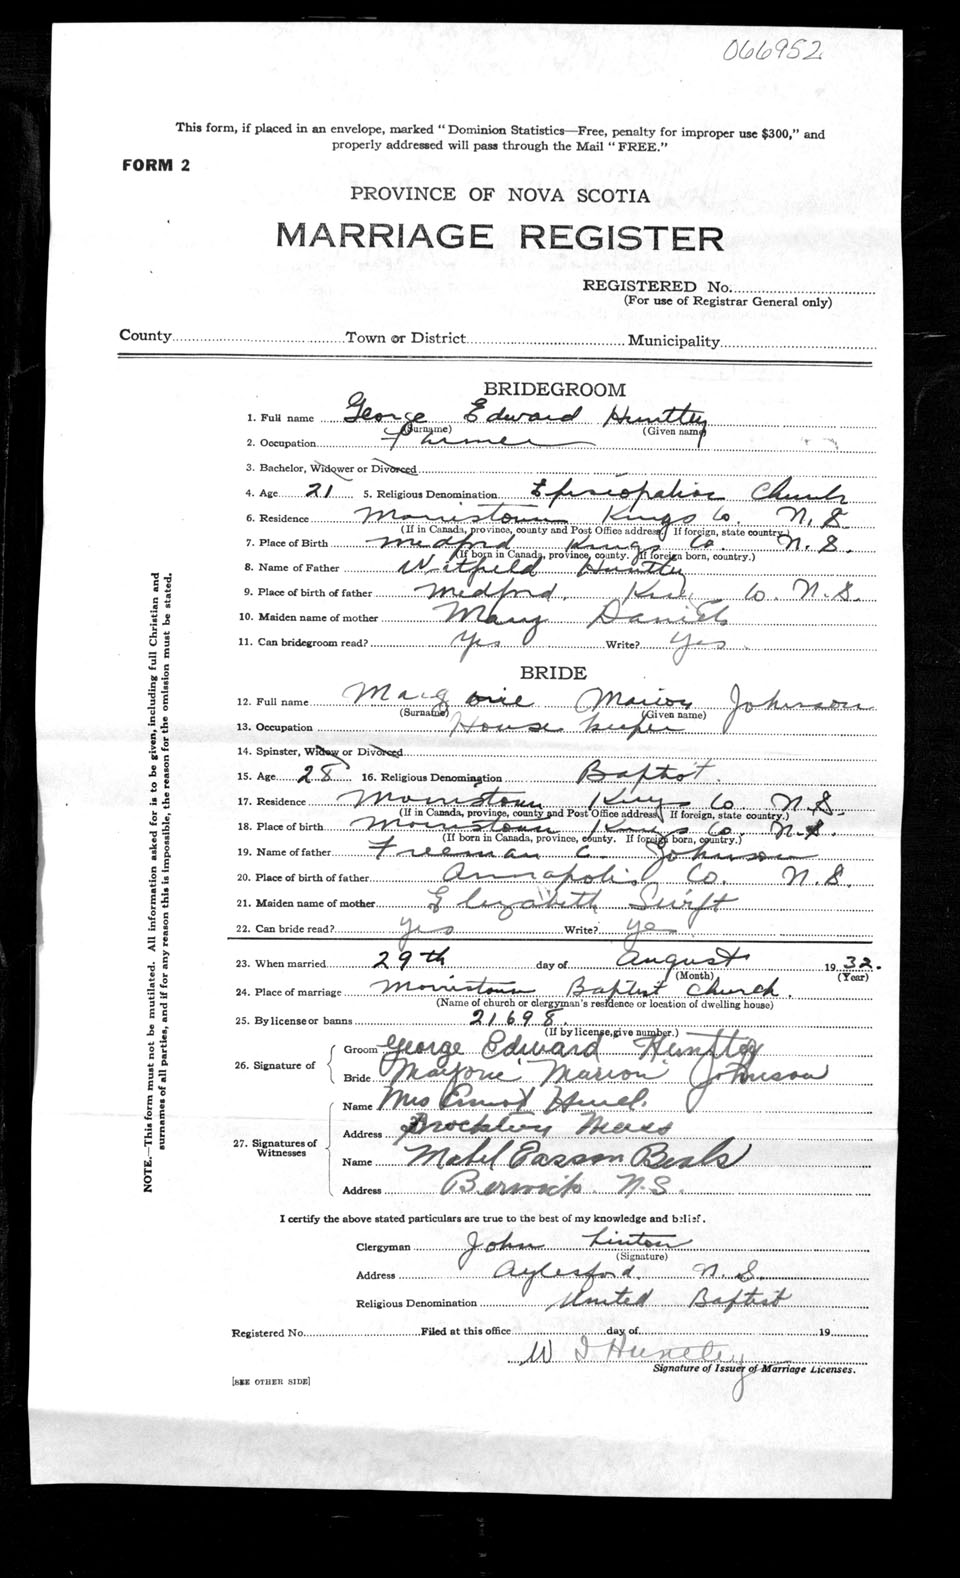 066952
This form, if placed in an envelope, marked "Dominion Statistics—Free, penalty for improper use $300," and
properly addressed will pass through the Mail "FREE."
FORM 2
PROVINCE OF NOVA SCOTIA
MARRIAGE REGISTER
REGISTERED No.
(For use of Registrar General only)
County Town or District Municipality
BRIDEGROOM
1. Full name George Edward Huntley
(Surname) (Given name)
2. Occupation Farmer
3. Bachelor, Widower or Divorced
4. Age 21 5. Religious Denomination Episcopalian Church
6. Residence Morristown Kings Co. N.S.
(If in Canada, province, county and Post Office address. If foreign, state country.)
7. Place of Birth Medford Kings Co. N.S.
(If born in Canada, province, county. If foreign born, country.)
8. Name of Father Huntley
9. Place of birth of father Medford, Co. N.S.
10. Maiden name of mother Mary Daniels
11. Can bridegroom read? Yes Write? Yes
BRIDE
12. Full name Margorie Marion Johnson
(Surname) (Given name)
13. Occupation House keeper
14. Spinster, Widow or Divorced
15. Age 28 16. Religious Denomination Baptist.
17. Residence Morristown Kings Co. N.S.
(If in Canada, province, county and Post Office address. If foreign, state country.)
18. Place of birth Morristown Kings Co. N.S.
(If born in Canada, province, county. If foreign born, country.)
19. Name of father Freeman C. Johnson
20. Place of birth of father Annapolis Co. N.S.
21. Maiden name of mother Elizabeth Swift
22. Can bride read? Yes Write? yes
23. When married 29th day of August 19 32.
(Month) (Year)
24. Place of marriage Morristown Baptist Church.
(Name of church or clergyman's residence or location of dwelling house)
25. By license or banns 21698.
(If by license, give number.)
26. Signature of
Groom George Edward Huntley
Bride Marjorie Marion Johnson
27. Signatures of Witnesses
Name Mrs
Address Brockton Mass
Name Mabel Easson Beals
Address Berwick N.S.
I certify the above stated particulars are true to the best of my knowledge and belief.
Clergyman John Linton
(Signature)
Address Aylesford. N.S.
Religious Denomination United Baptist
Registered No. Filed at this office day of 19
W I Huntley
Signature of Issuer of Marriage Licenses.
[SEE OTHER SIDE]
NOTE.—This form must not be mutilated. All information asked for is to be given, including full Christian and
surnames of all parties, and if for any reason this is impossible, the reason for the omission must be stated.